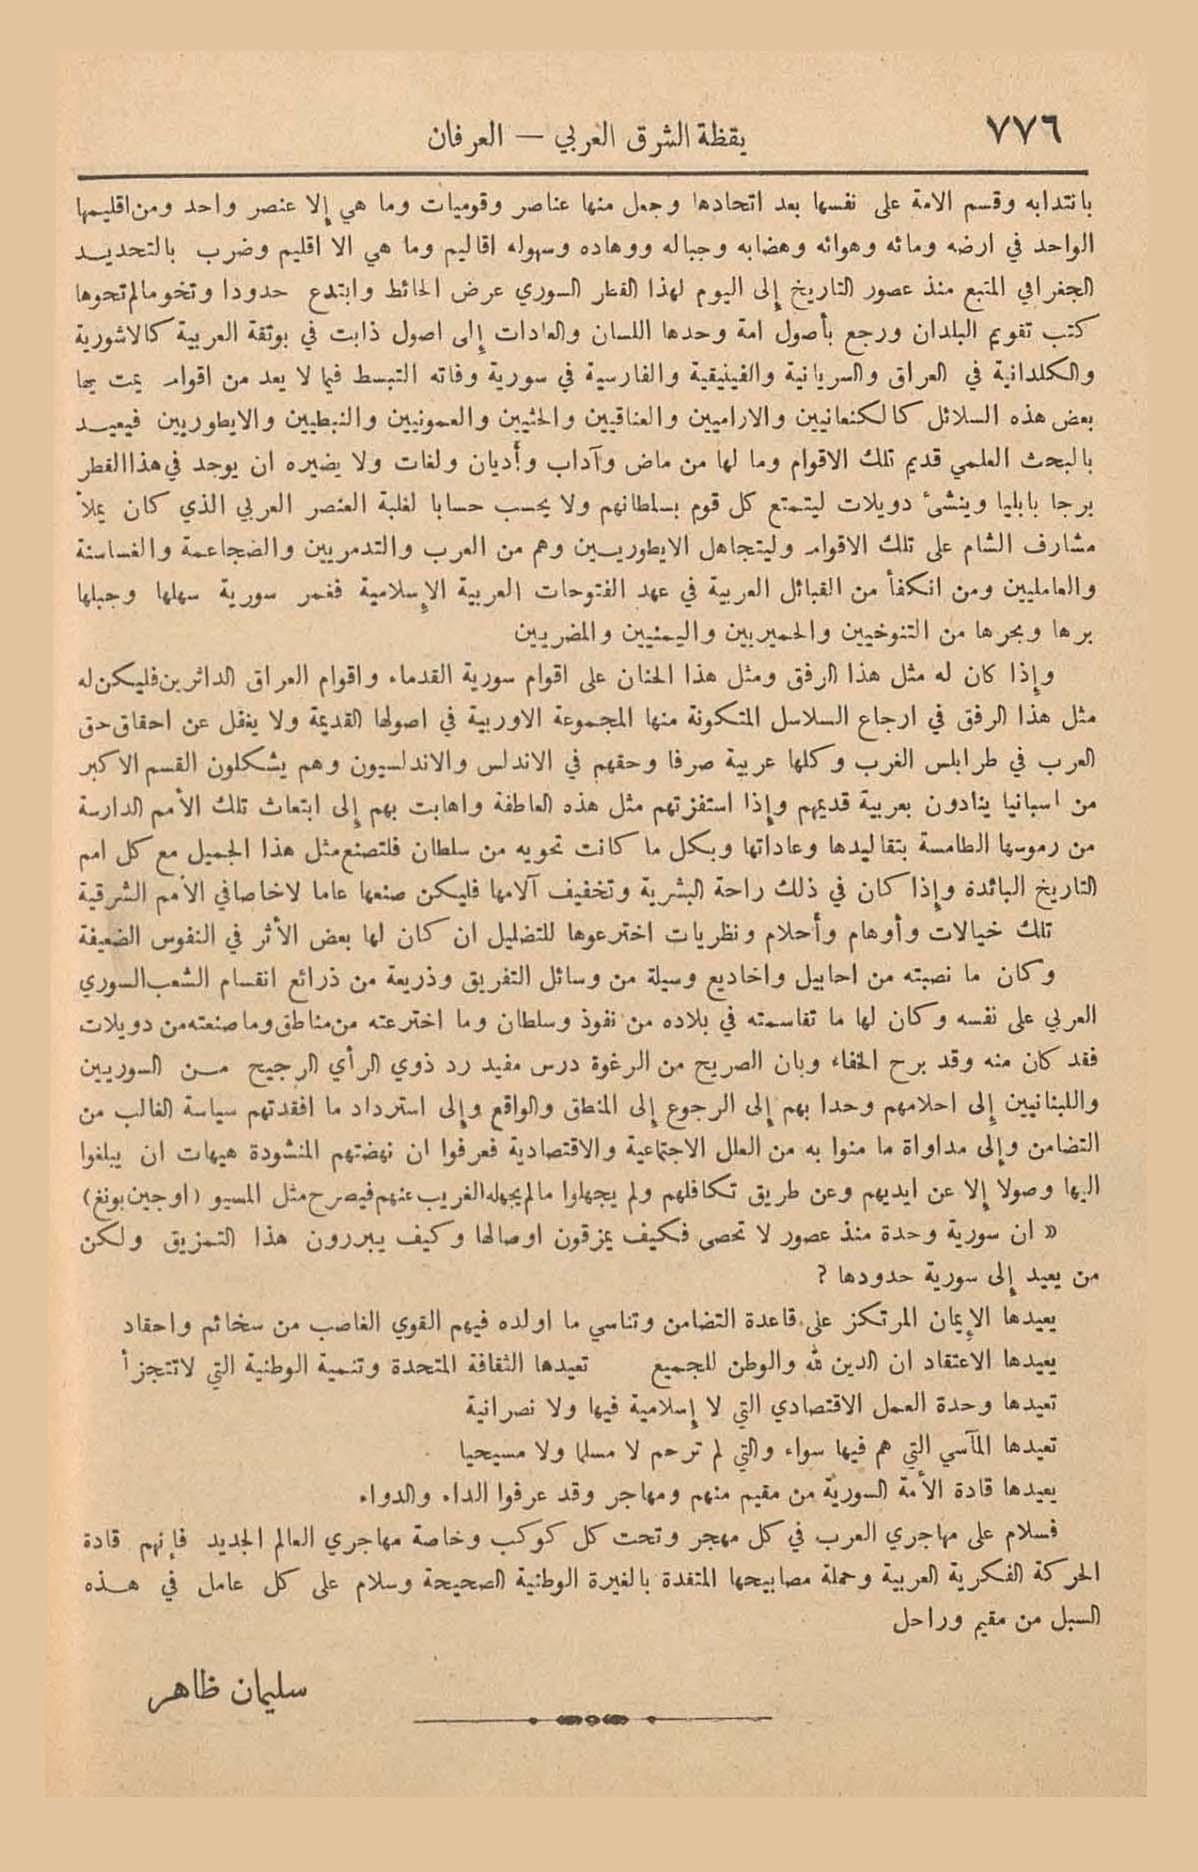 ٧٧٦
يقظة الشرق العربي — العرفان
بانتدابه وقسم الامة على نفسها بعد اتحادها وجعل منها عناصر وقوميات وما هي إلا عنصر واحد ومن اقليمها
الواحد في ارضه ومائه وهوائه وهضابه وجباله ووهاده وسهوله اقاليم وما هي الا اقليم وضرب بالتحديد
الجغرافي المتبع منذ عصور التاريخ إلى اليوم لهذا القطر السوري عرض الحائط وابتدع حدودا وتخوما لم تحوها
كتب تقويم البلدان ورجع بأصول امة وحدها اللسان والعادات إلى اصول ذابت في بوتقة العربية كالاشورية
والكلدانية في العراق والسريانية والفينيقية والفارسية في سورية وفاته التبسط فيما لا يعد من اقوام يمت بها
بعض هذه السلائل كالكنعانيين والاراميين والعناقيين والحثيين والعمونيين والنبطيين والايطوريين فيعيد
بالبحث العلمي قديم تلك الاقوام وما لها من ماض وآداب وأديان ولغات ولا يضيره ان يوجد في هذا القطر
برجا بابليا وينشئ دويلات ليتمتع كل قوم بسلطانهم ولا يحسب حسابا لغلبة العنصر العربي الذي كان يملأ
مشارف الشام على تلك الاقوام وليتجاهل الايطوريين وهم من العرب والتدمريين والضجاعمة والغساسنة
والعامليين ومن انكفأ من القبائل العربية في عهد الفتوحات العربية الإسلامية فغمر سورية سهلها وجبلها
برها وبحرها من التنوخيين والحميريين واليمنيين والمضريين
وإذا كان له مثل هذا الرفق ومثل هذا الحنان على اقوام سورية القدماء واقوام العراق الداثرين فليكن له
مثل هذا الرفق في ارجاع السلاسل المتكونة منها المجموعة الاوربية في اصولها القديمة ولا يغفل عن احقاق حق
العرب في طرابلس الغرب وكلها عربية صرفا وحقهم في الاندلس والاندلسيون وهم يشكلون القسم الاكبر
من اسبانيا ينادون بعربية قديمهم وإذا استفزتهم مثل هذه العاطفة واهابت بهم إلى ابتعاث تلك الأمم الدارسة
من رموسها الطامسة بتقاليدها وعاداتها وبكل ما كانت تحويه من سلطان فلتصنع مثل هذا الجميل مع كل امم
التاريخ البائدة وإذا كان في ذلك راحة البشرية وتخفيف آلامها فليكن صنعها عاما لا خاصا في الأمم الشرقية
تلك خيالات وأوهام وأحلام ونظريات اخترعوها للتضليل ان كان لها بعض الأثر في النفوس الضعيفة
وكان ما نصبته من احابيل واخاديع وسيلة من وسائل التفريق وذريعة من ذرائع انقسام الشعب السوري
العربي على نفسه وكان لها ما تقاسمته في بلاده من نفوذ وسلطان وما اخترعته من مناطق وما صنعته من دويلات
فقد كان منه وقد برح الخفاء وبان الصريح من الرغوة درس مفيد رد ذوي الرأي الرجيح من السوريين
واللبنانيين إلى احلامهم وحدا بهم إلى الرجوع إلى المنطق والواقع وإلى استرداد ما افقدتهم سياسة الغالب من
التضامن وإلى مداواة ما منوا به من العلل الاجتماعية والاقتصادية فعرفوا ان نهضتهم المنشودة هيهات ان يبلغوا
اليها وصولا إلا عن ايديهم وعن طريق تكافلهم ولم يجهلوا ما لم يجهله الغريب عنهم فيصرح مثل المسيو (اوجين بونغ)
« ان سورية وحدة منذ عصور لا تحصى فكيف يمزقون اوصالها وكيف يبررون هذا التمزيق ولكن
من يعيد إلى سورية حدودها ؟
يعيدها الإيمان المرتكز على قاعدة التضامن وتناسي ما اولده فيهم القوي الغاصب من سخائم واحقاد
يعيدها الاعتقاد ان الدين لله والوطن للجميع تعيدها الثقافة المتحدة وتنمية الوطنية التي لا تتجزأ
تعيدها وحدة العمل الاقتصادي التي لا إسلامية فيها ولا نصرانية
تعيدها المآسي التي هم فيها سواء والتي لم ترحم لا مسلما ولا مسيحيا
يعيدها قادة الأمة السورية من مقيم منهم ومهاجر وقد عرفوا الداء والدواء
فسلام على مهاجري العرب في كل مهجر وتحت كل كوكب وخاصة مهاجري العالم الجديد فإنهم قادة
الحركة الفكرية العربية وحملة مصابيحها المتقدة بالغيرة الوطنية الصحيحة وسلام على كل عامل في هذه
السبل من مقيم وراحل
سليمان ظاهر